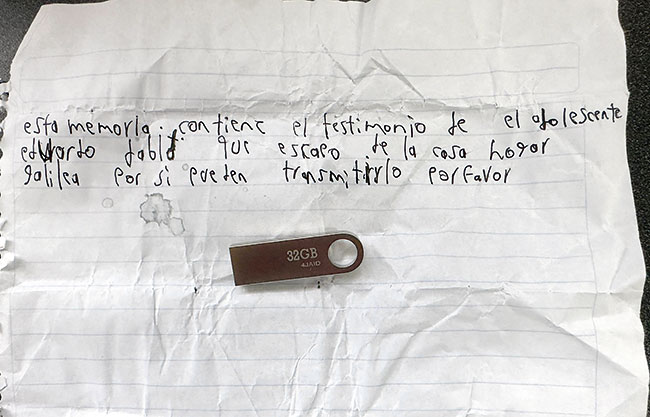 esta memoria contiene el testimonio de el adolescente
eduardo que escapo de la casa hogar
galilea por si pueden transmitirlo porfavor
32GB